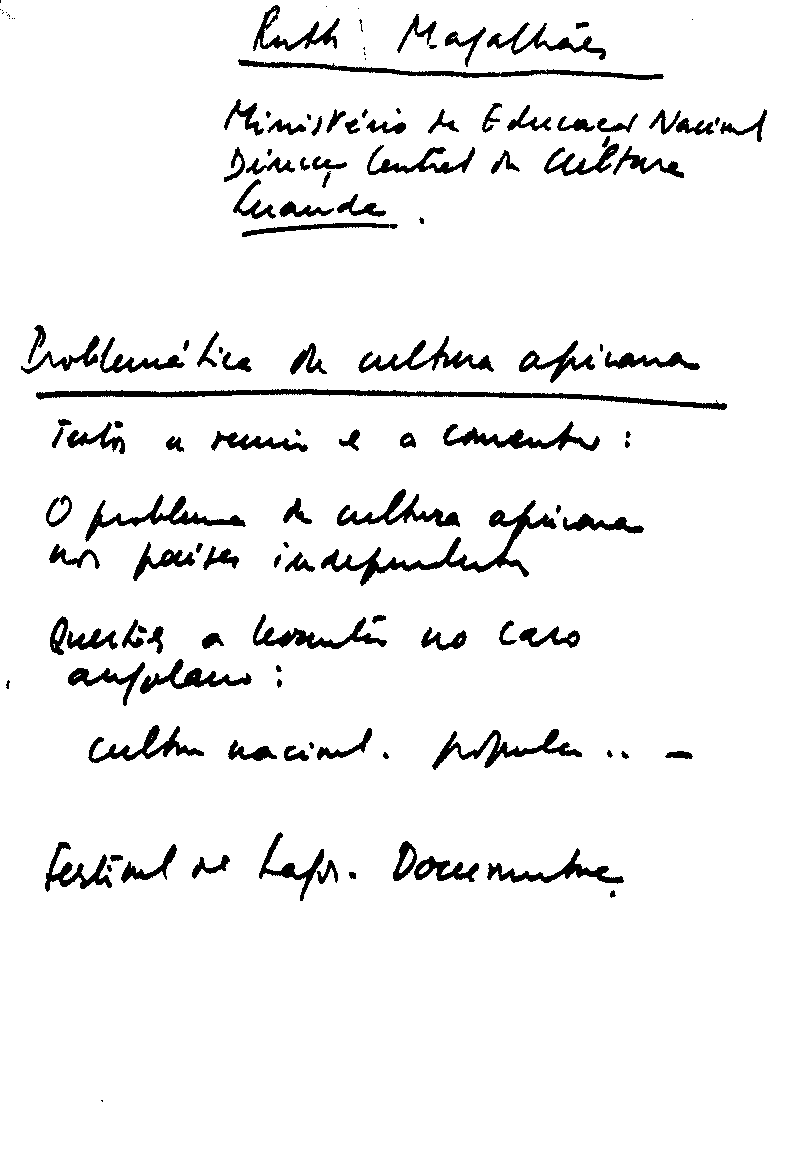 Ruth Magalhães
Ministério da Educação Nacional
Direcç Central da Cultura
Luanda.
Problemática da cultura africana
Textos a reunir e a comentar:
O problema da cultura africana
nos países independentes
Questões a levantar no caso
angolano:
cultura nacional. popular .. –
Festival de Lagos. Documentação